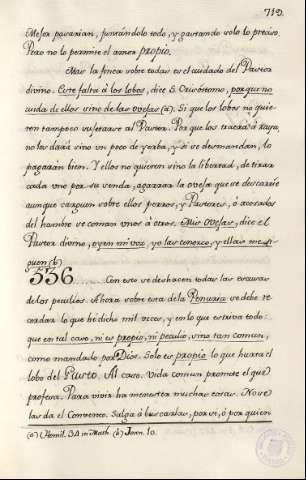 719.
Mejor pasarian, juntandolo todo, y gastando solo lo preciso.
Pero no lo permite el amor propio.
Mas la finca sobre todas es el cuidado del Pastor
divino. Este falta à los lobos, dice S. Crisóstomo, porque no
cuida de ellos sino de las ovejas (a). Si que los lobos no quie-
ren tampoco sujetarse al Pastor. Porque los traerá à raya,
no les dará sino un poco de yerba, y si se desmandan, lo
pagarán bien. Y ellos no quieren sino la libertad, de tirar
cada uno por su senda, agarrar la oveja que se descarríe
aunque carguen sobre ellos perros, y Pastores, ó acosados
del hambre se coman unos à otros. Mis Ovejas, dice el
Pastor divino, oyen mi voz, yo las conozco, y ellas me si-
guen (b)
536......... Con esto se deshacen todas las escusas
de los peculios. Ahora sobre esta de la Penuria se debe re-
cordar lo que hé dicho mil veces, y en lo que estriva todo:
que en tal caso, ni es propio, ni peculio, sino tan comun,
como mandado por Dios. Solo es propio lo que hurta el
lobo del Pasto. Al caso. Vida comun promete el que
profesa. Para vivir ha menester muchas cosas. No se
las da el Convento. Salga à buscarlas, por si, ó por quien
(a) Homil. 34 in Math. (b) Joan. 10.